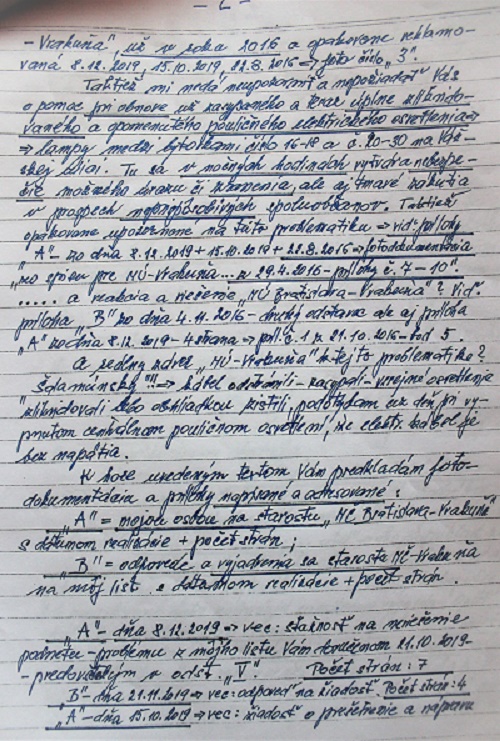 - 2 -
- Vrakuňa", už v roku 2016 a opakovane reklamo-
vaná 8.12.2019, 15.10.2019, 22.8.2016 => foto číslo „3".
Taktiež mi nedá neupozorniť a nepožiadať Vás
o pomoc pri obnove už zasypaného a teraz úplne zlikvido-
vaného a opomenutého pouličného elektrického osvetlenia =>
=> lampy medzi bytovkami číslo 16-18 a č. 20-30 na
skej ulici. Tu sa v nočných hodinách vytvára nebezpe-
čie možného úrazu či zranenia, ale aj tmavé zákutia
v prospech neprispôsobivých spoluobčanov. Taktiež
opakovane upozornené na túto problematiku => viď: prílohy
„A" - zo dňa 8.12.2019 + 15.10.2019 + 22.8.2016 => fotodokumentácia
pre MÚ-Vrakuňa... z 29.4.2016 - prílohy č. 7 - 10"
..... a reakcia a riešenie „MÚ Bratislava-Vrakuňa"? viď.
príloha „B" zo dňa 4.11.2016 - druhý odstavec ale aj príloha
„A" zo dňa 8.12.2019 - 4 strana => príl. č. 1 z 21.10.2016 - bod 5
A „MÚ-Vrakuňa" k tejto problematike?
"!! => kábel odstránili - zasypali - verejné osvetlenie
zlikvidovali lebo obhliadkou zistili, podotýkam cez deň pri vy-
pnutom centrálnom pouličnom osvetlení, že elektr. kábel je
bez napätia.
K hore uvedeným textom Vám predkladám foto-
dokumentáciu a prílohy napísané a adresované:
„A" = mojou osobou na starostu „MČ Bratislava-Vrakuňa"
s dátumom realizácie + počet strán;
„B" = odpovede a vyjadrenia sa starostu MČ-Vrakuňa
na môj list s dátumom realizácie + počet strán.
„A" - dňa 8.12.2019 => vec: sťažnosť na neriešenie
podnetu - problému z môjho listu Vám doručenom 21.10.2019-
- predovšetkým v odst. „V". Počet strán: 7
„B" - dňa 21.11.2019 => vec: odpoveď na žiadosť. Počet strán: 4
„A" - dňa 15.10.2019 => vec: žiadosť o prešetrenie a nápravu